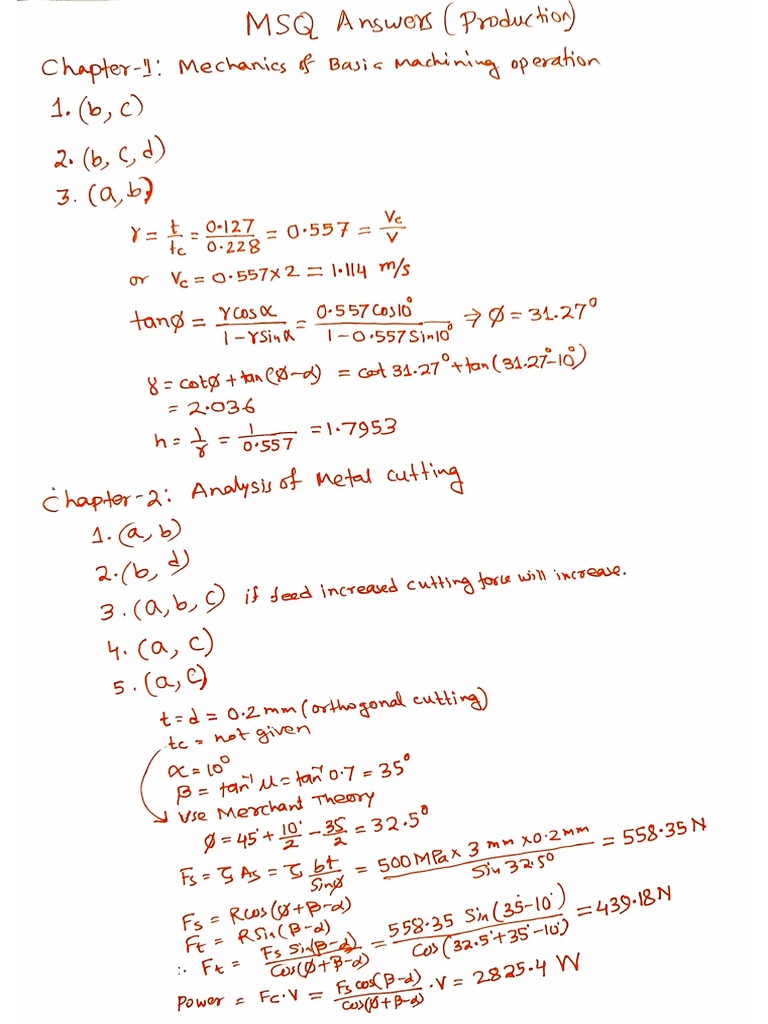 MSQ Answers (Production)
Chapter-1: Mechanics of Basic Machining operation
1. (b, c)
2. (b, c, d)
3. (a, b)
r = t/tc = 0.127/0.228 = 0.557 = Vc/V
or Vc = 0.557 × 2 = 1.114 m/s
tanφ = rcosα/1-rsinα = 0.557Cos10°/1-0.557Sin10° ⇒ φ = 31.27°
γ = cotφ + tan(φ-α) = cot 31.27° + tan(31.27°-10°)
= 2.036
h = 1/r = 1/0.557 = 1.7953
Chapter-2: Analysis of Metal cutting
1. (a, b)
2. (b, d)
3. (a, b, c) if feed increased cutting force will increase.
4. (a, c)
5. (a, c)
t = d = 0.2 mm (orthogonal cutting)
tc = not given
α = 10°
β = tan⁻¹ μ = tan⁻¹ 0.7 = 35°
Use Merchant Theory
φ = 45° + 10°/2 - 35/2 = 32.5°
Fs = τ As = τ bt/Sinφ = 500 MPa × 3 mm × 0.2 mm/Sin 32.5° = 558.35 N
Fs = Rcos(φ+β-α)
Ft = RSin(β-α)
∴ Ft = Fs sin(β-α)/Cos(φ+β-α) = 558.35 Sin(35-10°)/Cos(32.5°+35°-10°) = 439.18N
Power = Fc.V = Fs cos(β-α)/Cos(φ+β-α) .V = 2825.4 W